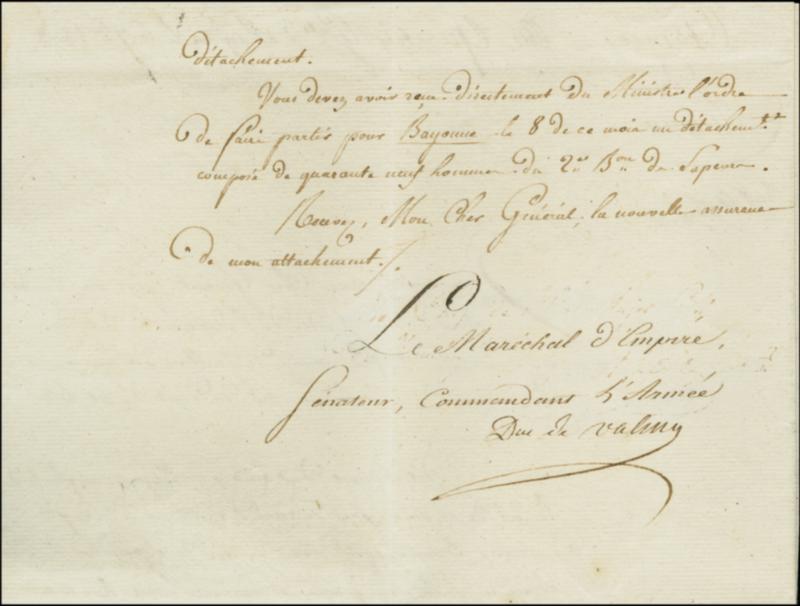 détachement.
Vous devez avoir reçu directement du Ministre l'ordre
de faire partir pour Bayonne le 8 de ce mois un détachem.t
composé de quarante neuf hommes du 2.e B.on de Sapeurs.
Recevez, Mon Cher Général, la nouvelle assurance
de mon attachement ./.
Le Maréchal d'Empire,
Sénateur, Commandant l'Armée
Duc de valmy